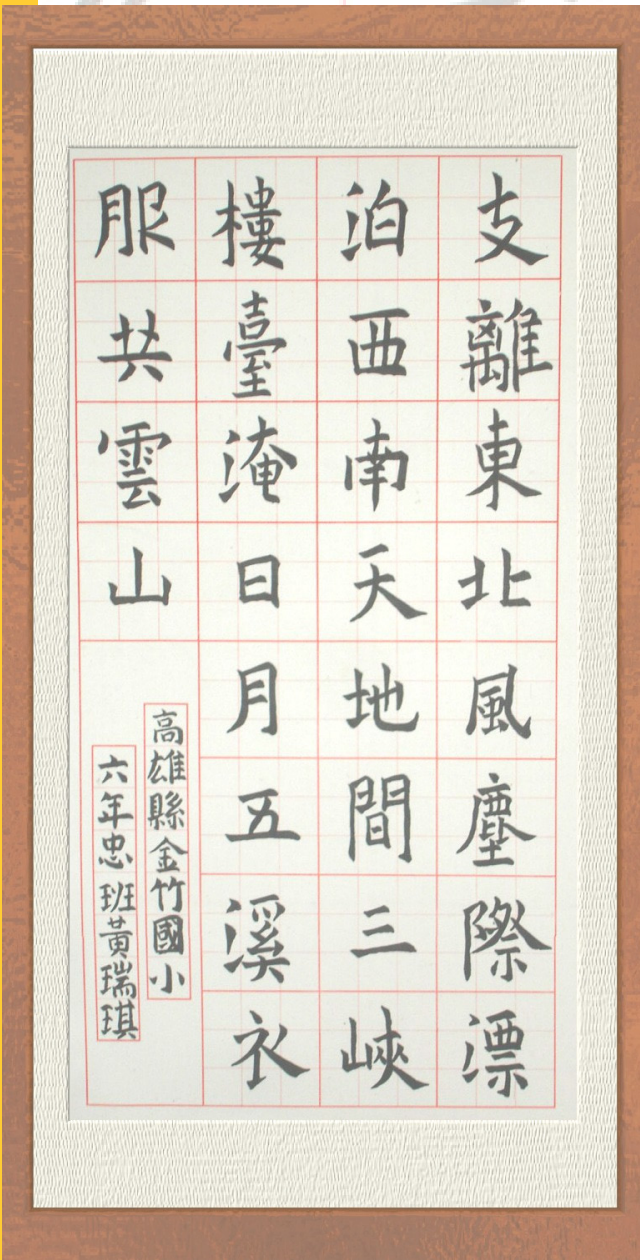 支離東北風塵際漂
泊西南天地間三峽
樓臺淹日月五溪衣
服共雲山
高雄縣金竹國小
六年忠班黃瑞琪